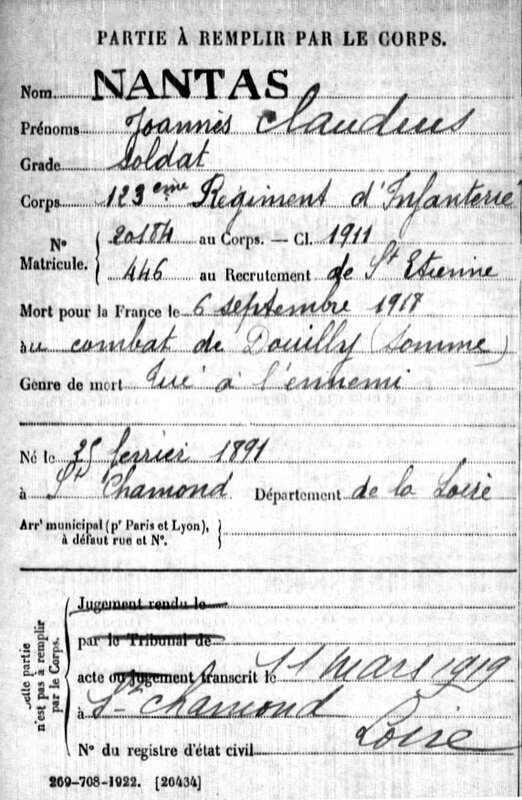 PARTIE À REMPLIR PAR LE CORPS.
Nom NANTAS
Prénoms Joannès Claudius
Grade Soldat
Corps 123eme Régiment d'Infanterie
N° Matricule. { 20184 au Corps. — Cl. 1911
446 au Recrutement de St Etienne
Mort pour la France le 6 septembre 1918
au combat de Douilly (Somme)
Genre de mort Tué à l'ennemi
Né le 25 février 1891
à St Chamond Département de la Loire
Arrt municipal (pr Paris et Lyon),
à défaut rue et N°.
Cette partie
n'est pas à remplir
par le Corps.
Jugement rendu le
par le Tribunal de
acte ou jugement transcrit le 11 mars 1919
à St Chamond
Loire
N° du registre d'état civil
269-708-1922. [26434]